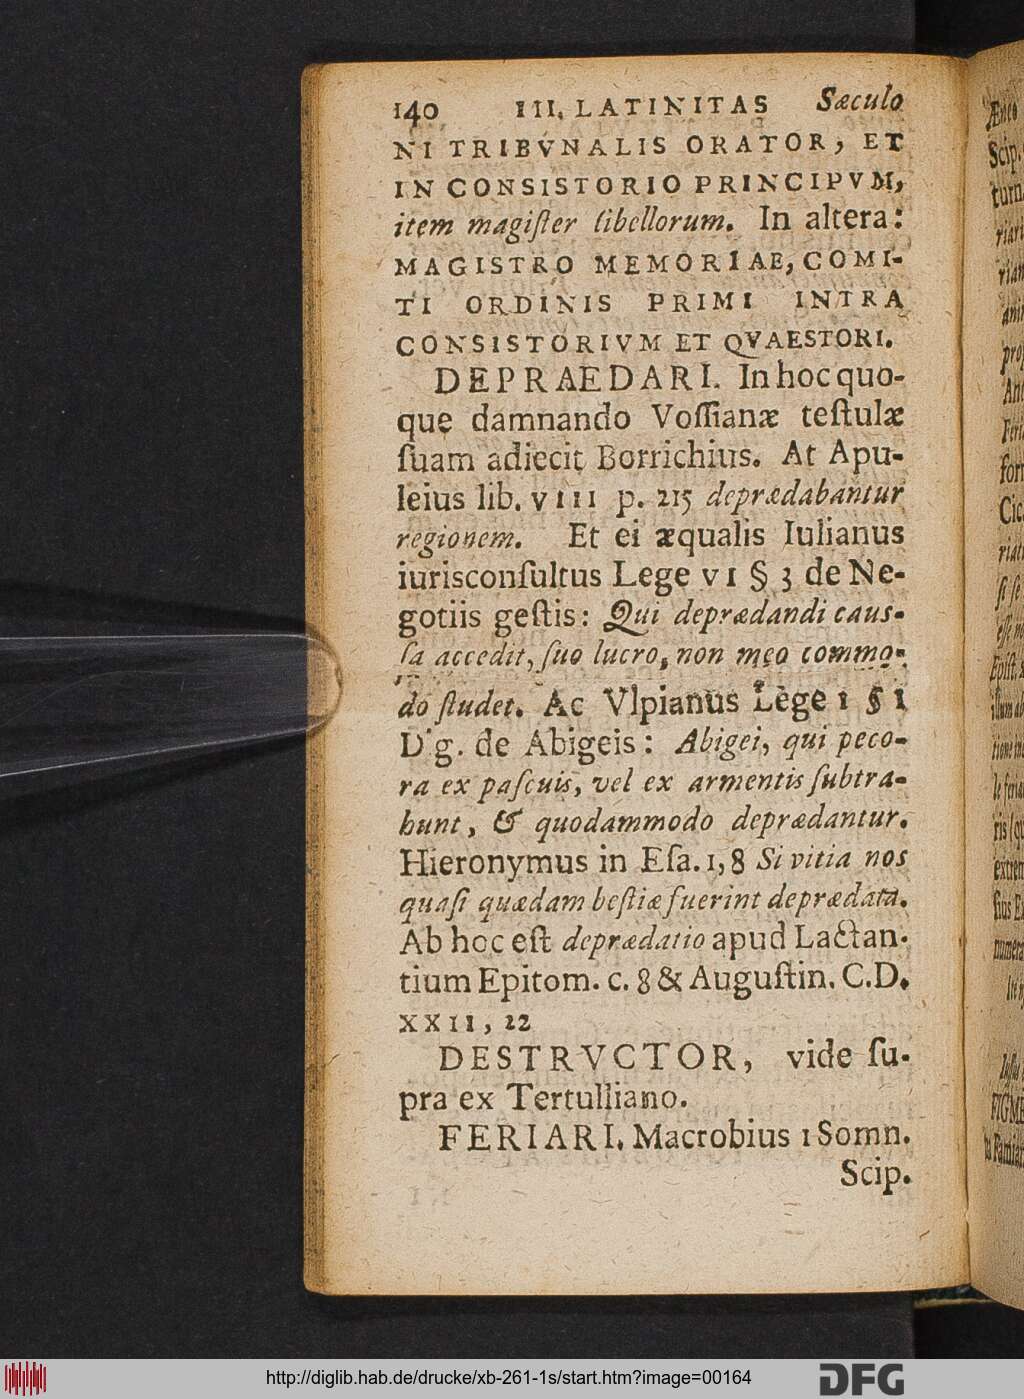 140 III. LATINITAS Sæculo
NI TRIBVNALIS ORATOR, ET
IN CONSISTORIO PRINCIPVM,
item magiſter libellorum. In altera:
MAGISTRO MEMORIAE, COMI-
TI ORDINIS PRIMI INTRA
CONSISTORIVM ET QVAESTORI.
DEPRAEDARI. In hoc quo-
que damnando Voſſianæ teſtulæ
ſuam adiecit Borrichius. At Apu-
leius lib. VIII p. 215 deprædabantur
regionem. Et ei æqualis Iulianus
iurisconſultus Lege VI § 3 de Ne-
gotiis geſtis: Qui deprædandi cauſ-
ſa accedit, ſuo lucro, non meo commo-
do ſtudet. Ac Vlpianus Lege 1 § 1
D g. de Abigeis: Abigei, qui peco-
ra ex paſcuis, vel ex armentis ſubtra-
hunt, & quodammodo deprædantur.
Hieronymus in Eſa. 1, 8 Si vitia nos
quaſi quædam beſtiæ fuerint deprædata.
Ab hoc eſt deprædatio apud Lactan-
tium Epitom. c. 8 & Auguſtin. C.D.
XXII, 22
DESTRVCTOR, vide ſu-
pra ex Tertulliano.
FERIARI. Macrobius 1 Somn.
Scip.
http://diglib.hab.de/drucke/xb-261-1s/start.htm?image=00164
DFG